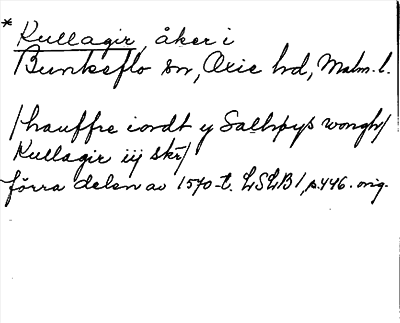 * Kullagir, åker i
Bunkeflo sn, Oxie hd, Malm. l.
/hauffre iordt y Salhøys wongh/
Kullagir iij skr/
förra delen av 1570-t. LSLB 1, p. 446. orig.